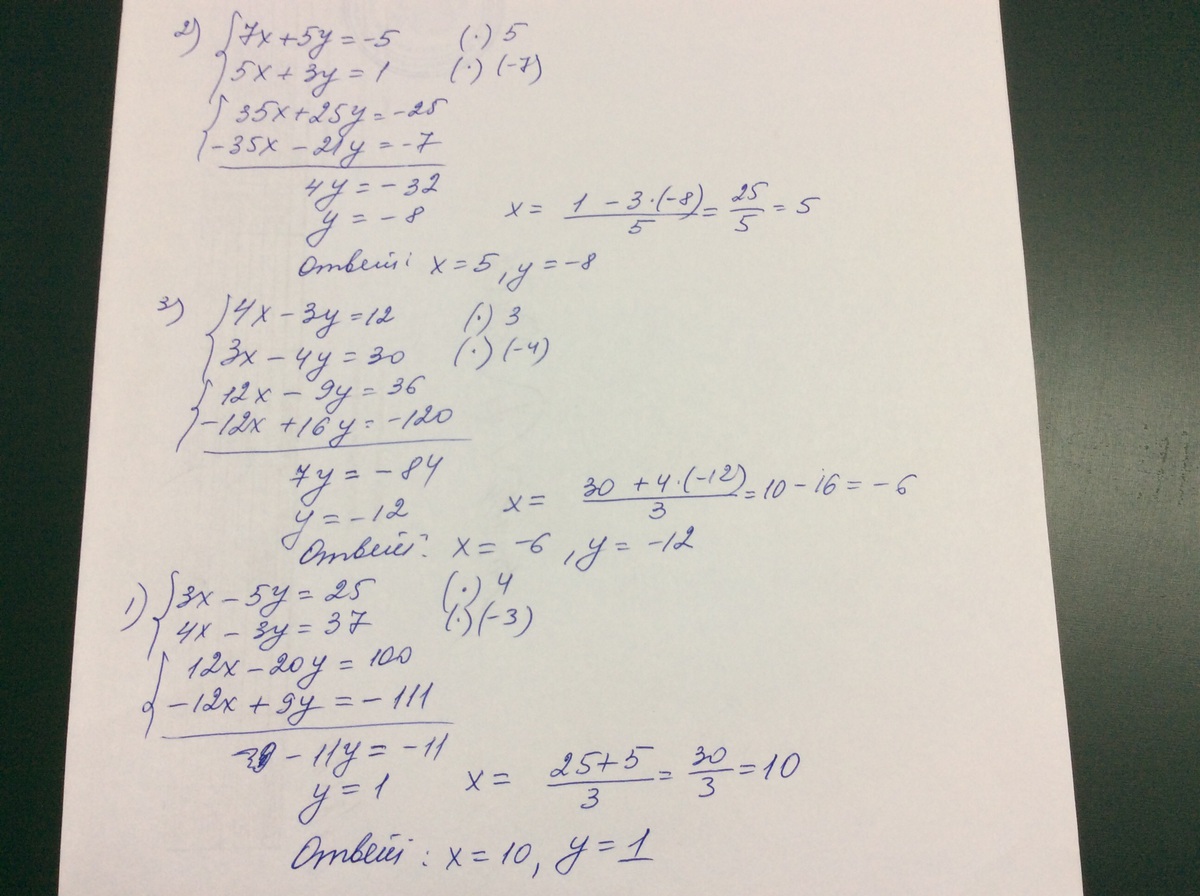 2) {7x+5y=-5 (·) 5
5x+3y=1 (·) (-7)
{35x+25y=-25
-35x-21y=-7
4y=-32
y=-8 x= 1-3·(-8)/5 = 25/5 = 5
Ответ: x=5, y=-8
3) {4x-3y=12 (·) 3
3x-4y=30 (·) (-4)
{12x-9y=36
-12x+16y=-120
7y=-84
y=-12 x= 30+4·(-12)/3 = 10-16=-6
Ответ: x=-6, y=-12
1) {3x-5y=25 (·) 4
4x-3y=37 (·) (-3)
{12x-20y=100
-12x+9y=-111
-11y=-11
y=1 x= 25+5/3 = 30/3 = 10
Ответ: x=10, y=1